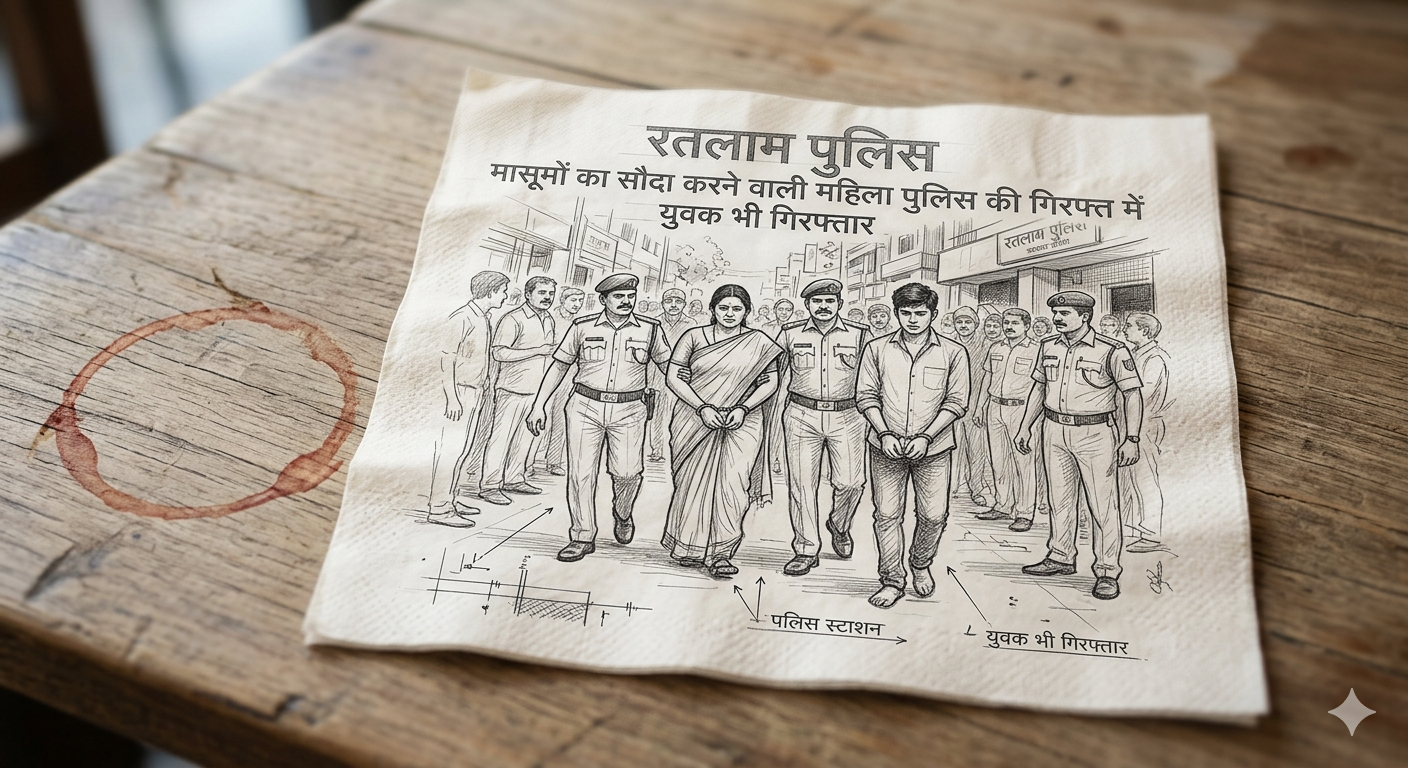 रतलाम पुलिस
मासूमों का सौदा करने वाली महिला पुलिस की गिरफ्त में
युवक भी गिरफ्तार
रतलाम पुलिस
पलिस स्टाशन
युवक भी गिरफ्तार